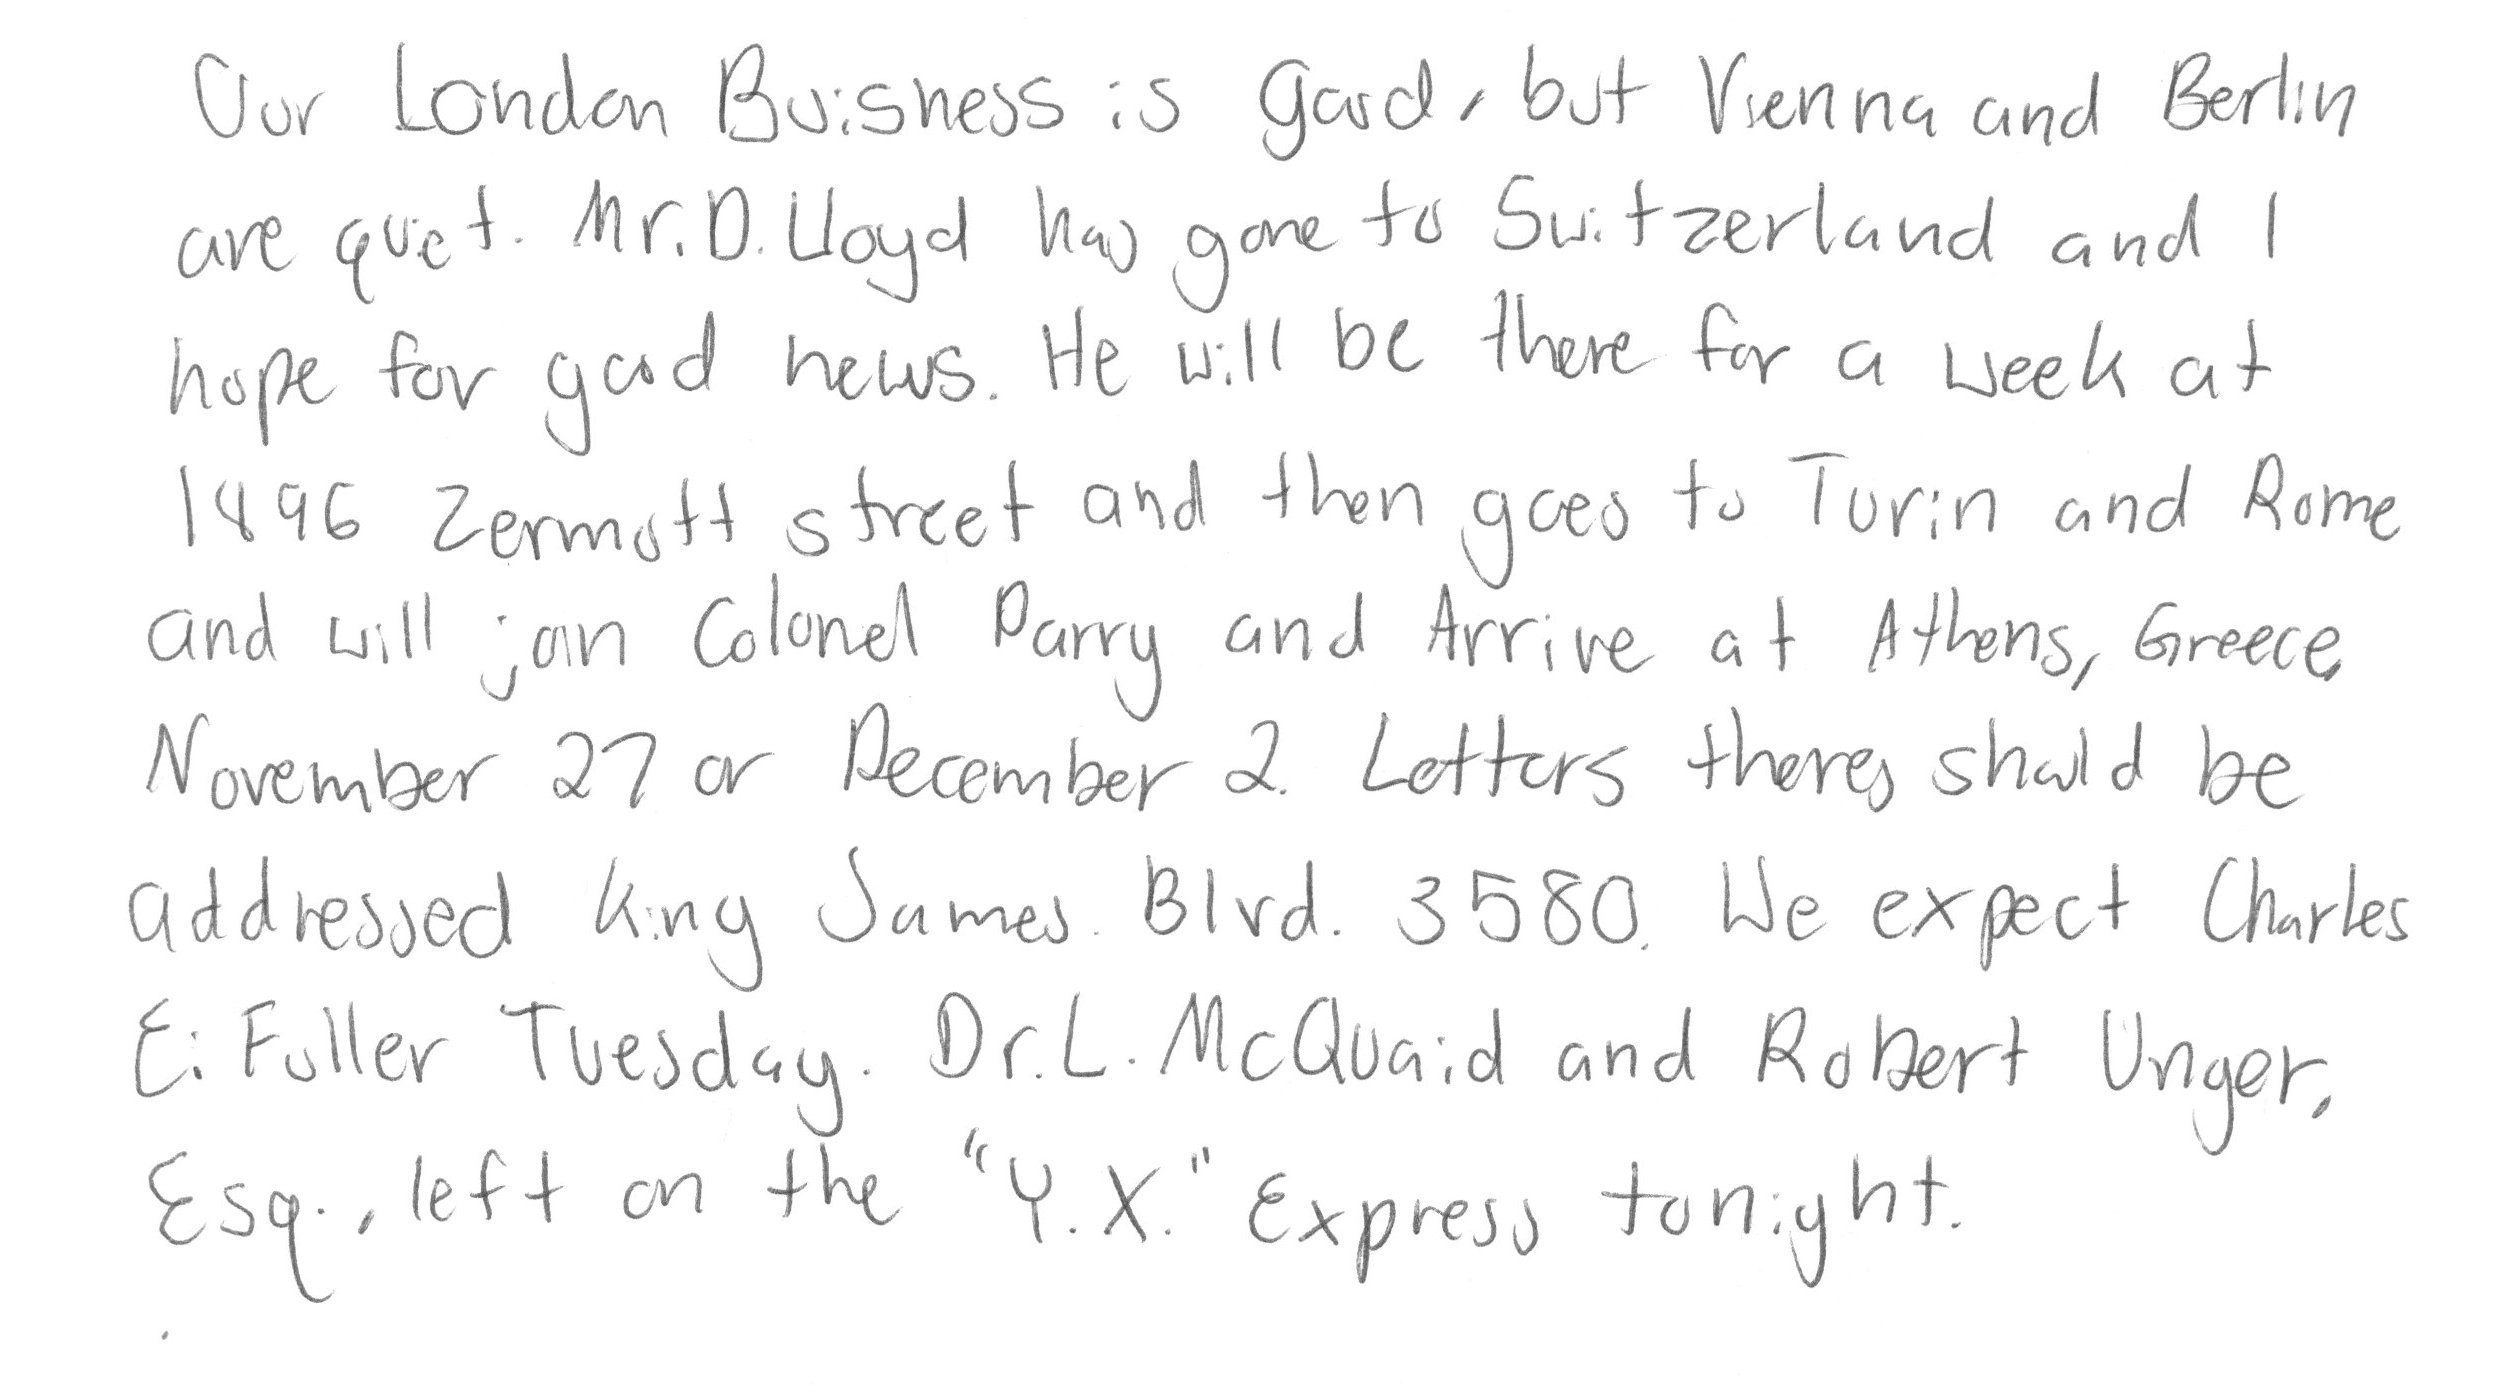 Our London Buisness is good, but Vienna and Berlin
are quiet. Mr. D. Lloyd has gone to Switzerland and I
hope for good news. He will be there for a week at
1896 Zermott street and then goes to Turin and Rome
and will join Colonel Parry and Arrive at Athens, Greece,
November 27 or December 2. Letters there, should be
addressed King James. Blvd. 3580. We expect Charles
E. Fuller Tuesday. Dr. L. McQuaid and Robert Unger,
Esq., left on the "Y.X." Express tonight.